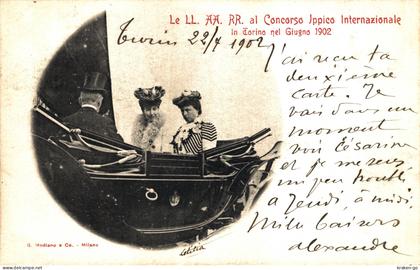 Le LL. AA. RR. al Concorso Ippico Internazionale
in Torino nel Giugno 1902
Turin 22/4 1902
J'ai reçu ta
deuxième
carte. Je
vais dans un
moment
voir Césarine
et je me sens
un peu
à jeudi, à midi,
Mille baisers
alexandre
G. Modiano e Co. - Milano
Letitia